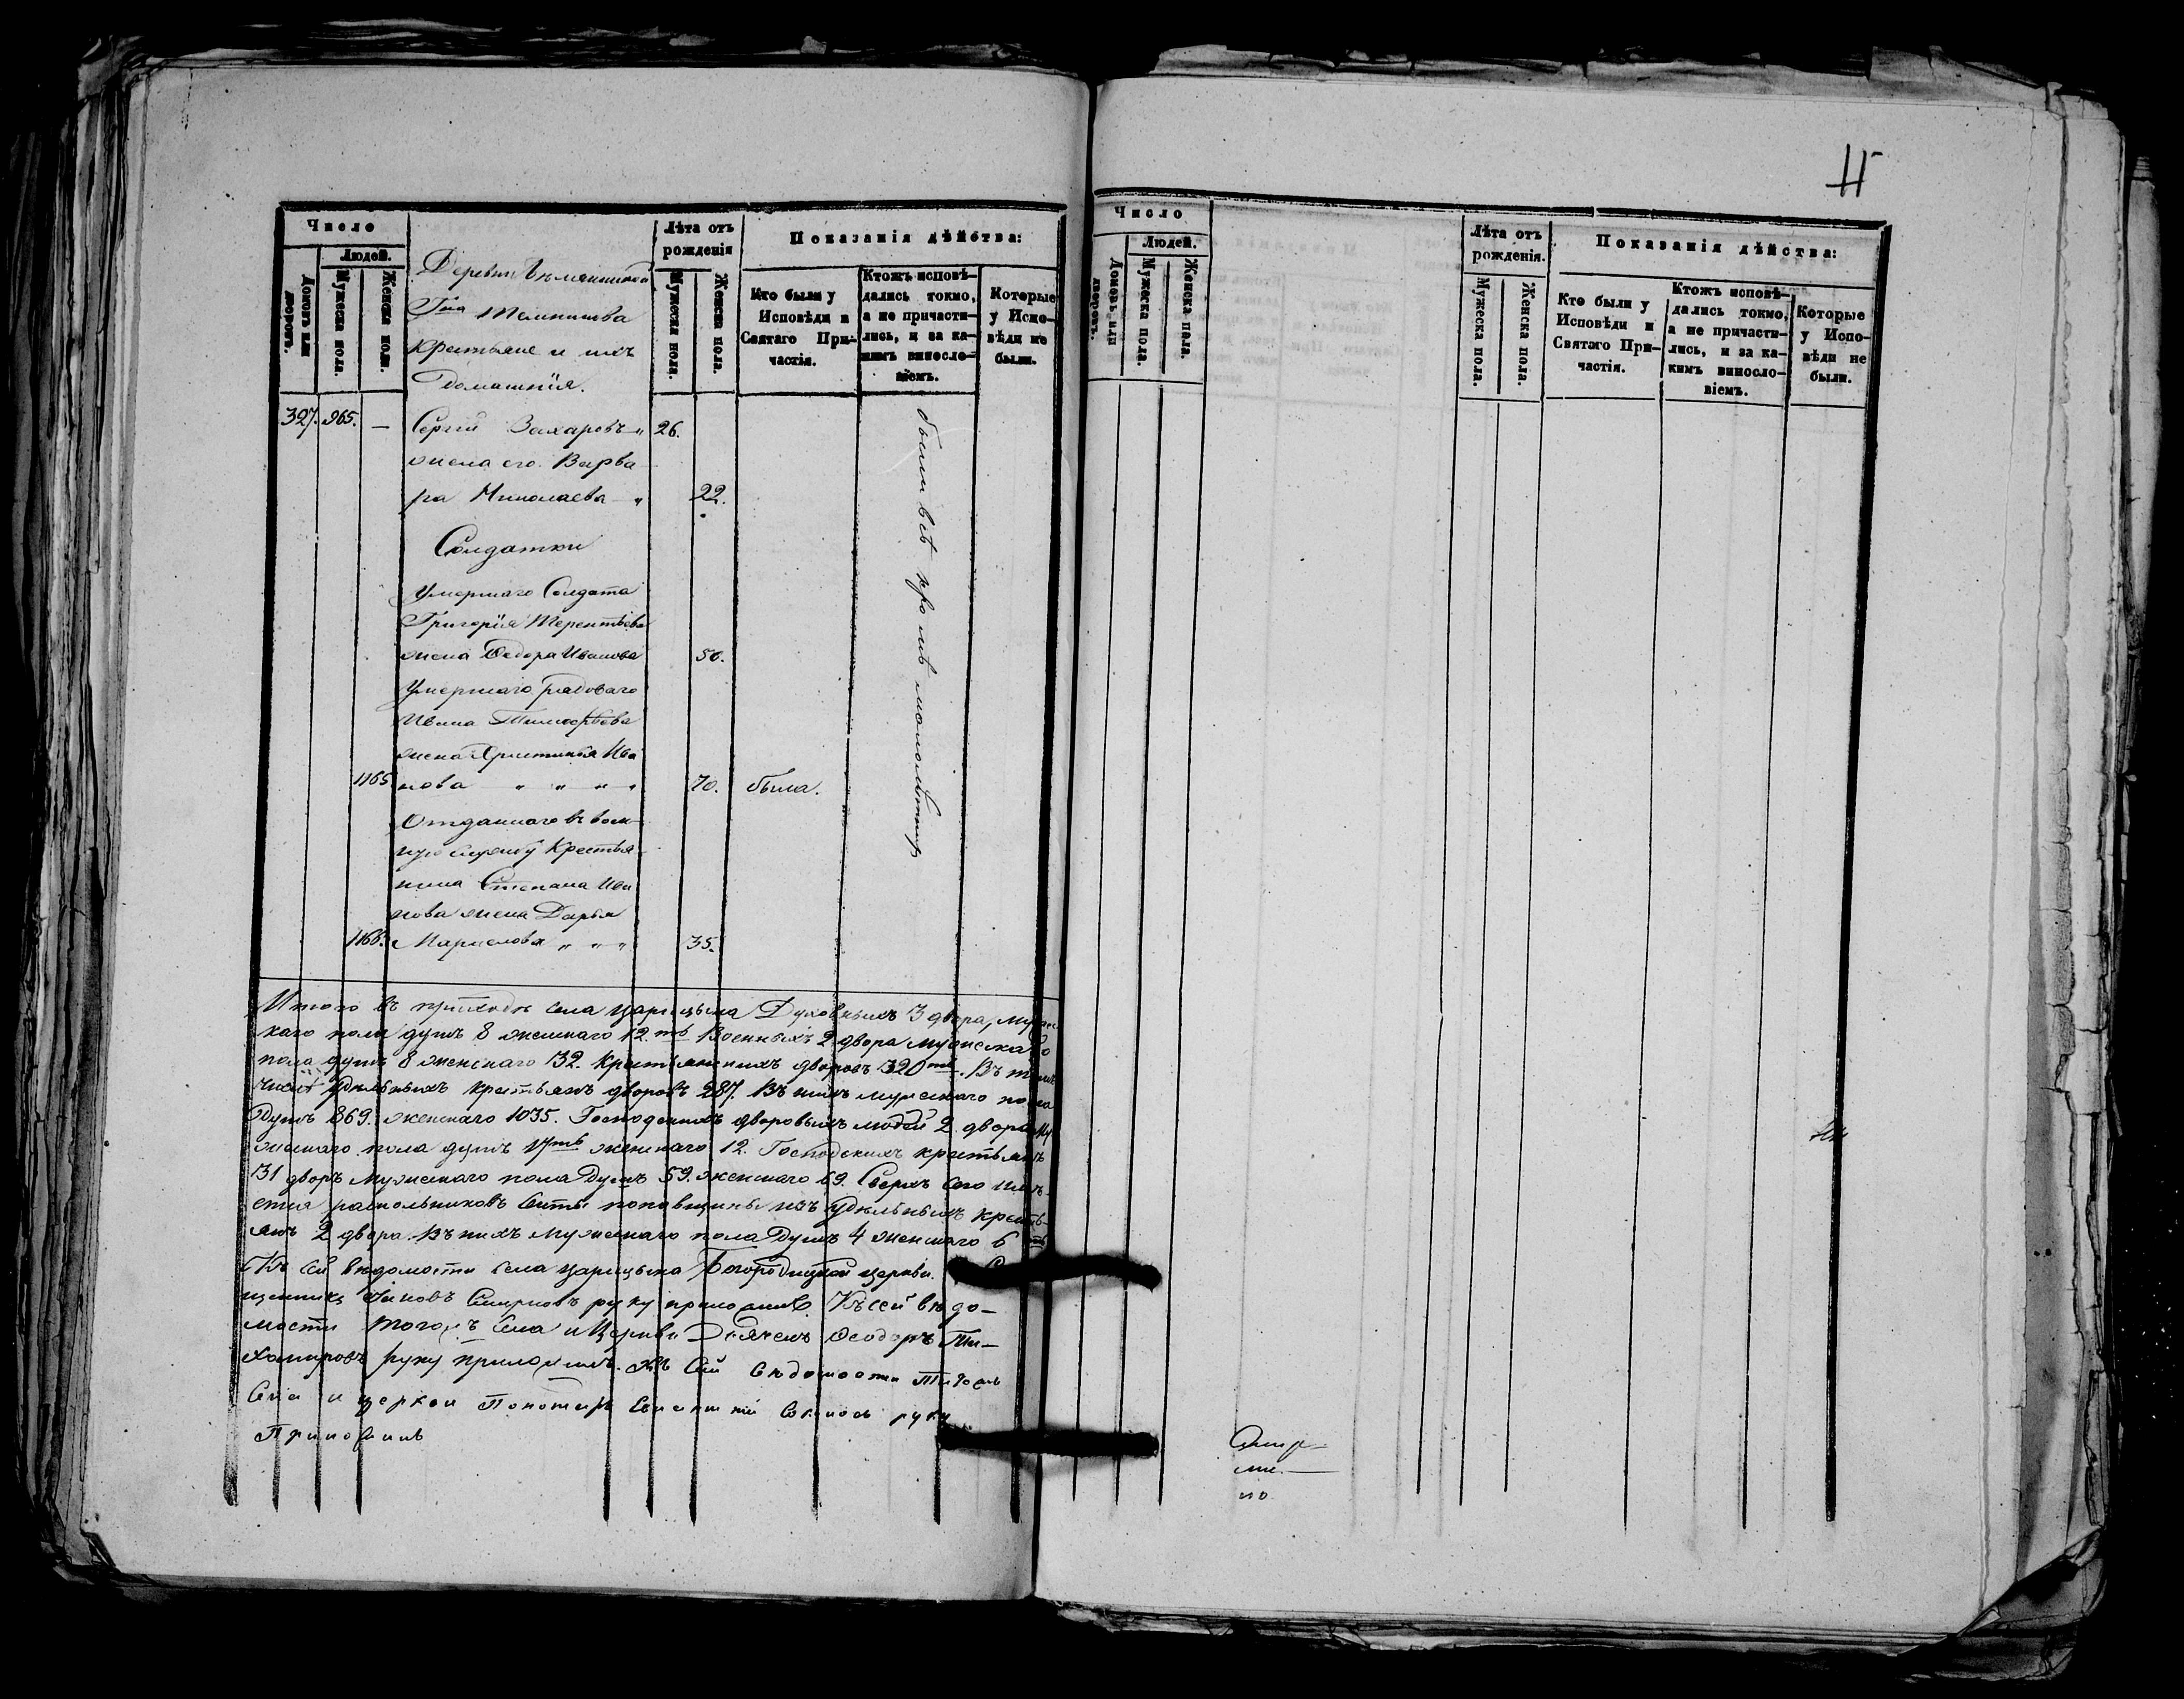 Число
Людей.
Домовъ или дворовъ.
Мужеска пола.
Женска пола.
Деревни
Гна
крестьяне и ихъ
домашнія.
Лѣта отъ
рожденія
Мужеска пола.
Женска пола.
Показанія дѣйства:
Кто были у
Исповѣди и
Святаго При-
частія.
Ктожъ исповѣ-
дались токмо,
а не причасти-
лись, и за ка-
кимъ винносло-
віемъ.
Которые
у Испо-
вѣди не
были.
397. 965. — Сергій Захаровъ „ 26.
жена его Варва
ра Николаева „ 22.
Солдатки
Умершаго Солдата
Григорія Терентьева
жена Ѳедора Иванова 50.
Умершаго рядоваго
Ивана Тимофѣева
жена Христинья Ива
1165 нова „ „ „ „ 70. была.
Отданнаго въ воен
ную службу Крестья
нина Степана Ива
нова жена Дарья
1166. „ „ „ 35.
были всѣ кромѣ
Итого въ приходѣ села Царицына Духовныхъ 3 двора, мужес
каго пола душъ 8 женскаго 12.ть Военныхъ 2 двора мужескаго
пола душъ 8 женскаго 132. Крестьянскихъ дворовъ 320ть. Въ томъ
числѣ Удѣльныхъ крестьянъ дворовъ 287. Въ нихъ мужескаго пола
Душъ 869. женскаго 1035. Господскихъ дворовыхъ людей 2 двора Му
жескаго пола душъ 17ть женскаго 12. Господскихъ крестьянъ
131 дворъ мужескаго пола Душъ 59. женскаго 69. Сверхъ сего имѣ-
ется раскольниковъ Секты поповщины изъ удѣльныхъ кресть-
янъ 2 двора. Въ нихъ мужескаго пола Душъ 4 женскаго 6
Къ сей вѣдомости села Царицына Богородицкой церкви.
щенникъ Смирновъ руку приложилъ Къ сей вѣдо-
мости тогожъ Села и Церкви Дьячекъ Ѳеодоръ Ти-
хомировъ руку приложилъ. Къ сей вѣдомости тогожъ
Села и церкви Пономарь руку
Приложилъ
Число
Людей.
Домовъ или дворовъ.
Мужеска пола.
Женска пола.
Лѣта отъ
рожденія.
Мужеска пола.
Женска пола.
Показанія дѣйства:
Кто были у
Исповѣди и
Святаго При-
частія.
Ктожъ исповѣ-
дались токмо,
а не причасти-
лись, и за ка-
кимъ виносло-
віемъ.
Которые
у Испо-
вѣди не
были.